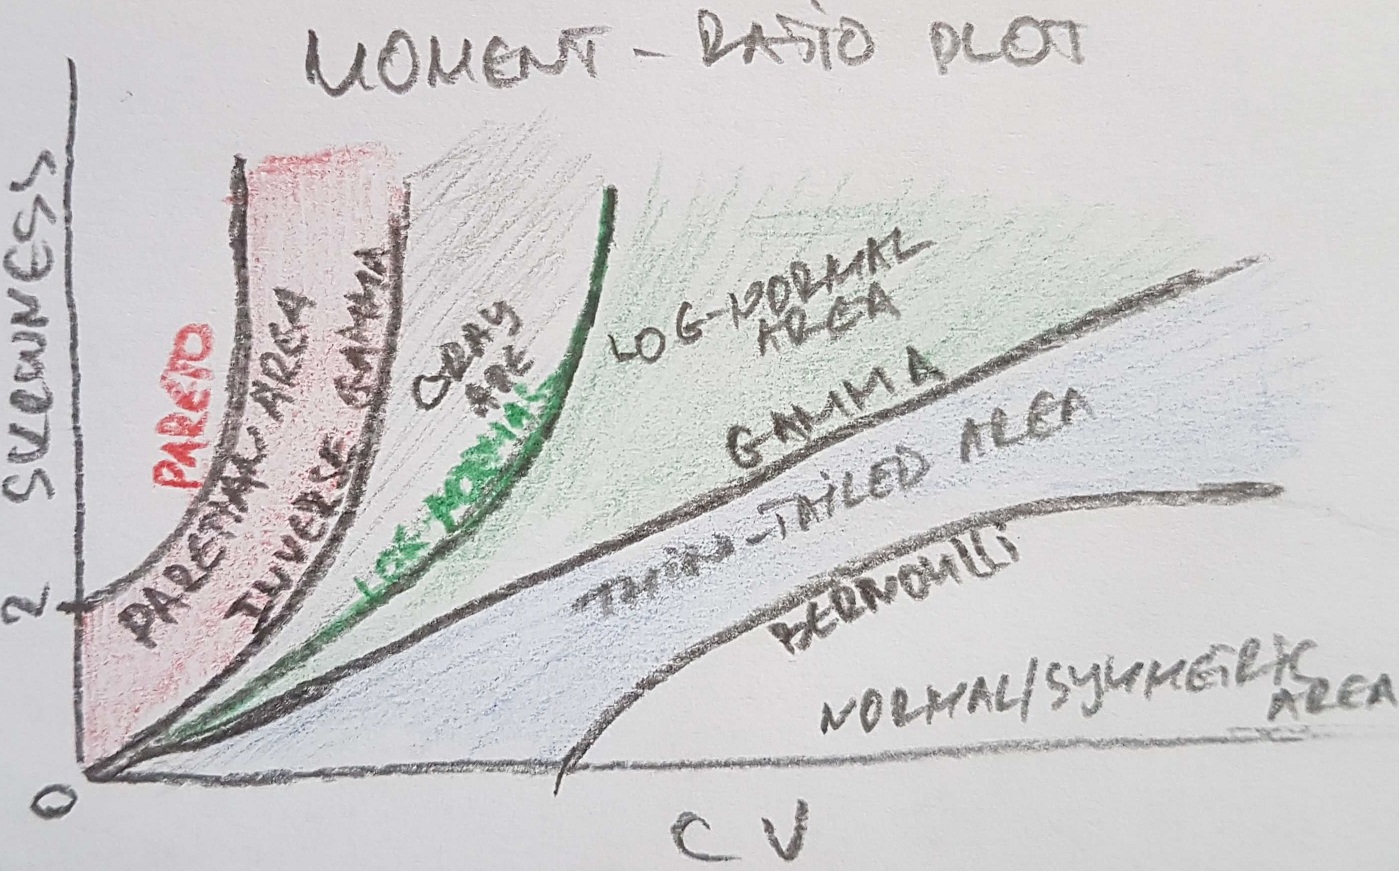 MOMENT - RATIO PLOT
SKEWNESS
2
0
PARETO
PARETIAN AREA
INVERSE GAMMA
GRAY
ARE
LOG-NORMAL
LOG-NORMAL
AREA
GAMMA
THINN-TAILED AREA
BERNOULLI
NORMAL/SYMMETRIC
AREA
CV